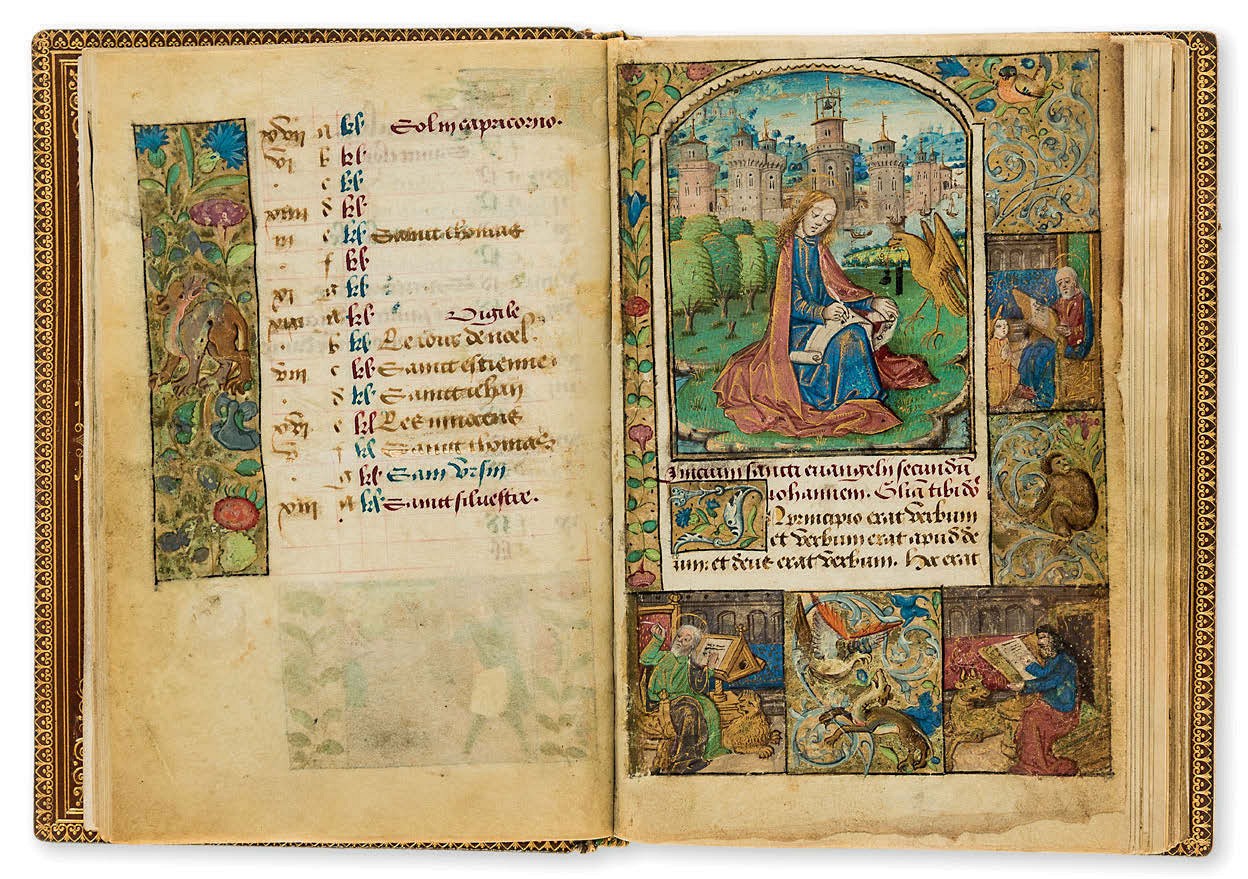 xvii A kl Sol in capricorno.
vi b kl
. c kl
xiiii d kl
iii e kl Sainct thomas
. f kl
xi g kl
xix A kl Vigile
. b kl Le iour de noel.
viii c kl Sainct estienne
. d kl Sainct iehan
xvi e kl Les innocens
v f kl Sainct thomas
. g kl Sainct Vrsin
xiii A kl Sainct siluestre.
Inicium sancti euangelii secundū
iohannem. Glīa tibi dōe
In principio erat verbum
et verbum erat apud de
um: et deus erat verbum. Hoc erat